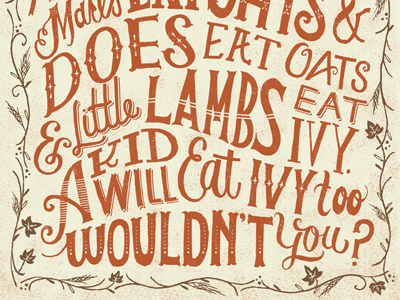 Mares EAT OATS &
DOES EAT OATS
& Little LAMBS EAT IVY.
A KID WILL Eat IVY too
WOULDN'T You?